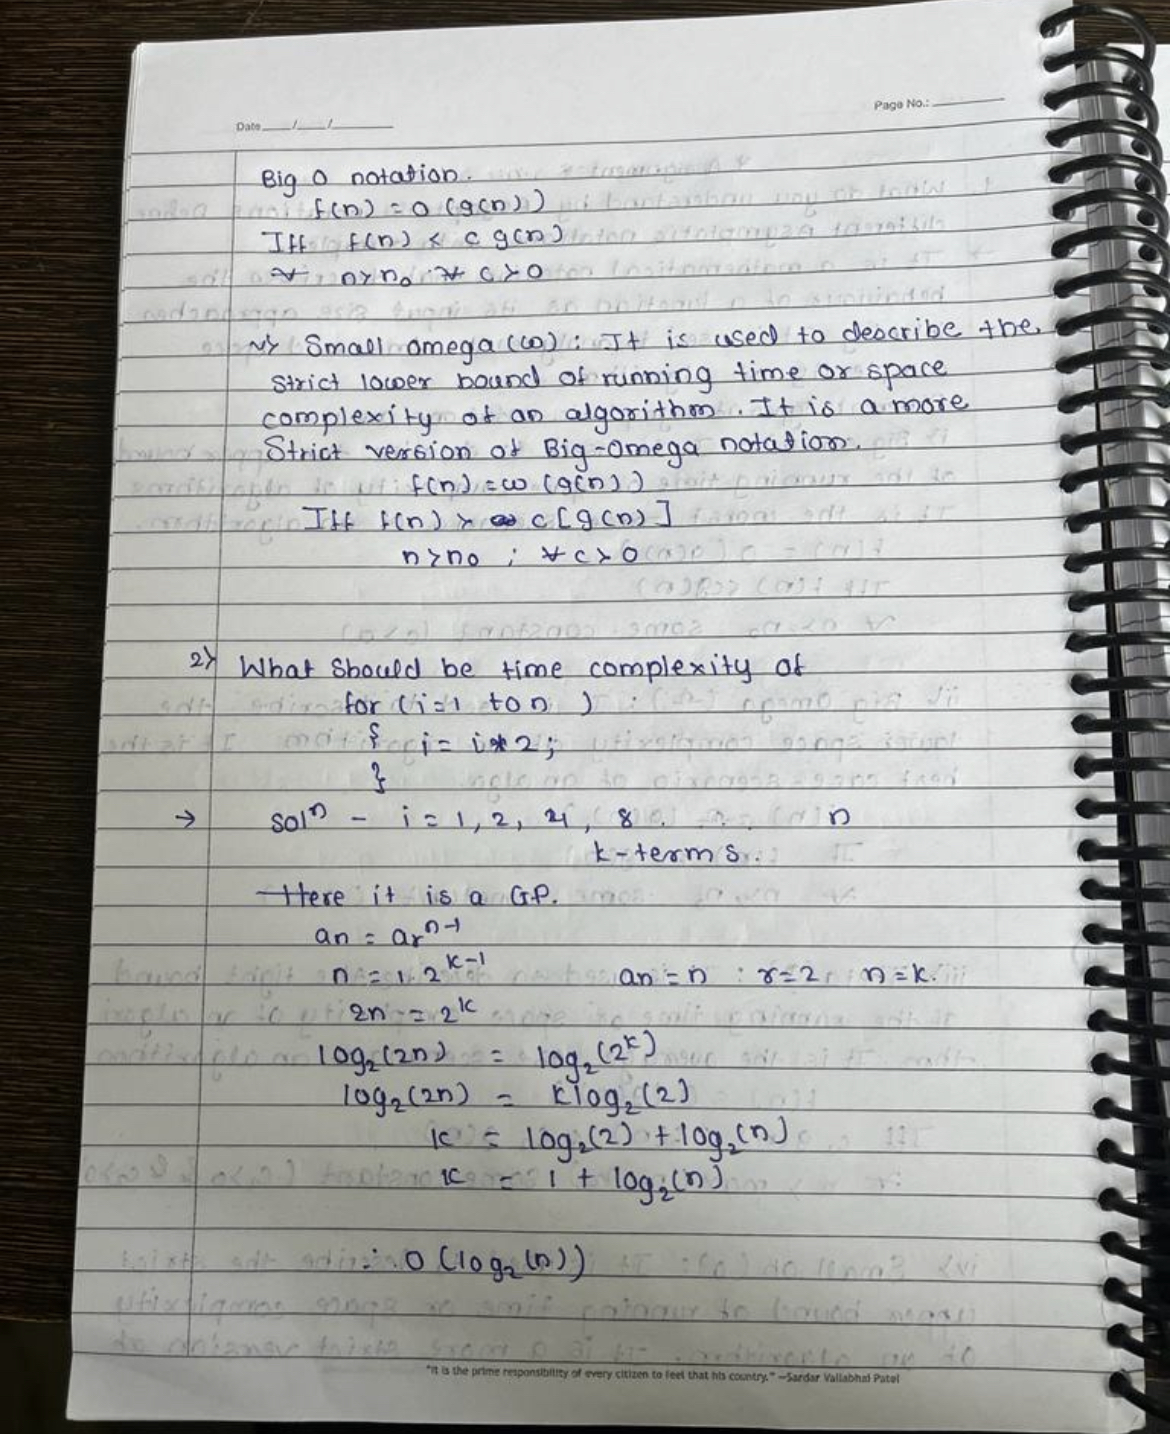 Page No.:
Date / /
Big O notation.
f(n) = O (g(n))
Iff f(n) < c g(n)
∀ n>n₀ ∀ c>0
v> Small omega (ω) : It is used to describe the
strict lower bound of running time or space
complexity of an algorithm. It is a more
Strict version of Big-Omega notation.
f(n) = ω (g(n))
Iff f(n) > c[g(n)]
n>n₀ ; ∀ c>0
2> What should be time complexity of
for (i=1 to n )
{ i = i*2;
}
→ solⁿ - i = 1, 2, 4, 8 . . . . n
k-terms.
Here it is a GP.
an = arⁿ⁻¹
n = 1. 2ᵏ⁻¹ an = n : r=2 n=k.
2n = 2ᵏ
log₂(2n) = log₂(2ᵏ)
log₂(2n) = klog₂(2)
k = log₂(2) + log₂(n)
k = 1 + log₂(n)
O (log₂(n))
"It is the prime responsibility of every citizen to feel that his country." —Sardar Vallabhai Patel